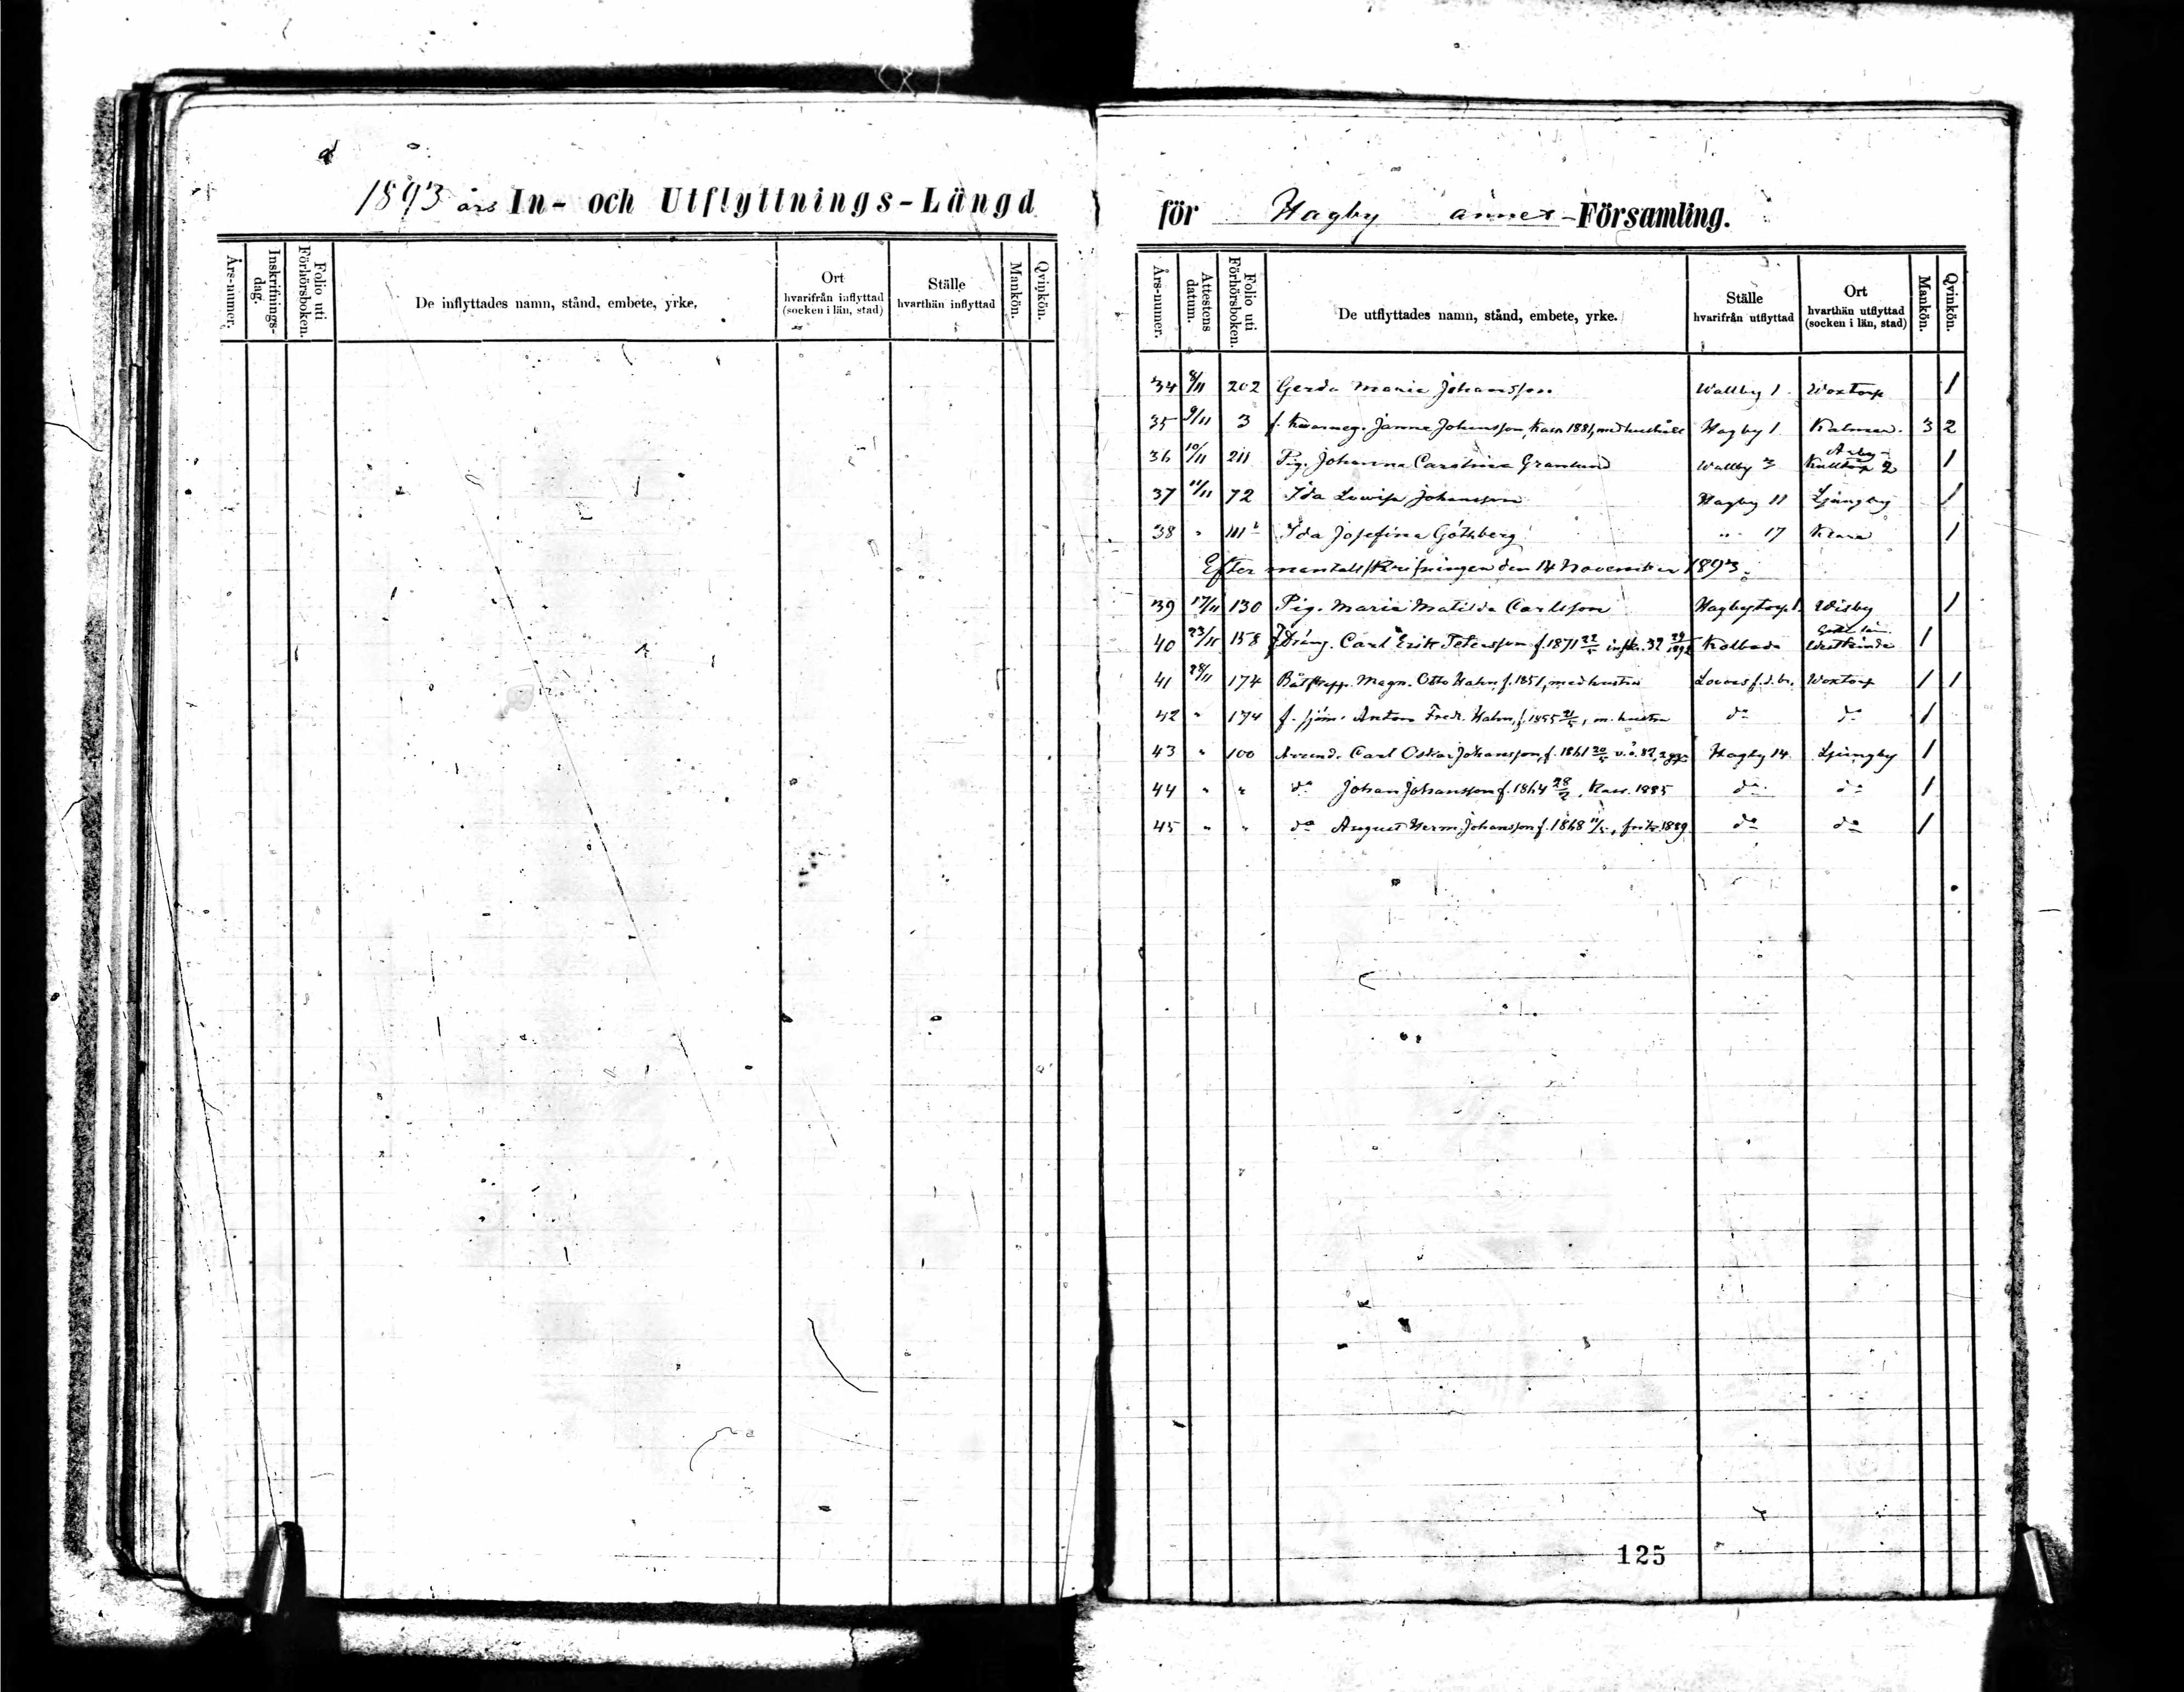 1893 års In- och Utflyttnings-Längd
Års-numer. Inskrifnings-dag. Folio uti Förhörsboken. De inflyttades namn, stånd, embete, yrke. Ort hvarifrån inflyttad (socken i län, stad) Ställe hvarthän inflyttad Mankön. Qvinkön.
för Hagby annex-Församling.
Års-numer. Attestens datum. Folio uti Förhörsboken. De utflyttades namn, stånd, embete, yrke. Ställe hvarifrån utflyttad Ort hvarthän utflyttad (socken i län, stad) Mankön. Qvinkön.
34 8/11 202 Gerda Maria Johansson Wallby 1. Woxtorp 1
35 9/11 3 f. Janne Johansson, kass. 1881, med hushåll Hagby 1. Kalmar. 3 2
36 10/11 211 Pig. Johanna Carolina Granlund Wallby 3 Arby 2 1
37 11/11 72 Ida Lovisa Johansson Hagby 11 Ljungby 1
38 " Ida Josefina Göthberg " 17 1
Efter mantalsskrifningen den 14 November 1893.
39 17/11 130 Pig. Maria Matilda Carlsson Hagbytorp 1. Wisby 1
40 23/11 158 Dräng. Carl Erik Petersson f. 1871 Kolboda Gotl. län. Westkinde 1
41 28/11 174 Magn. Otto Halm f. 1851, med hustru Woxtorp 1 1
42 " 174 f. sjöm. Anton Fredr. Halm, f. 1855, m. hustru do do 1
43 " 100 Arrend. Carl Oskar Johansson, f. 1861 Hagby 14 Ljungby 1
44 " " do Johan Johansson f. 1864 28/2, Kass. 1885 do. do 1
45 " " do August Herm. Johansson f. 1868, frik. 1889 do do 1
125